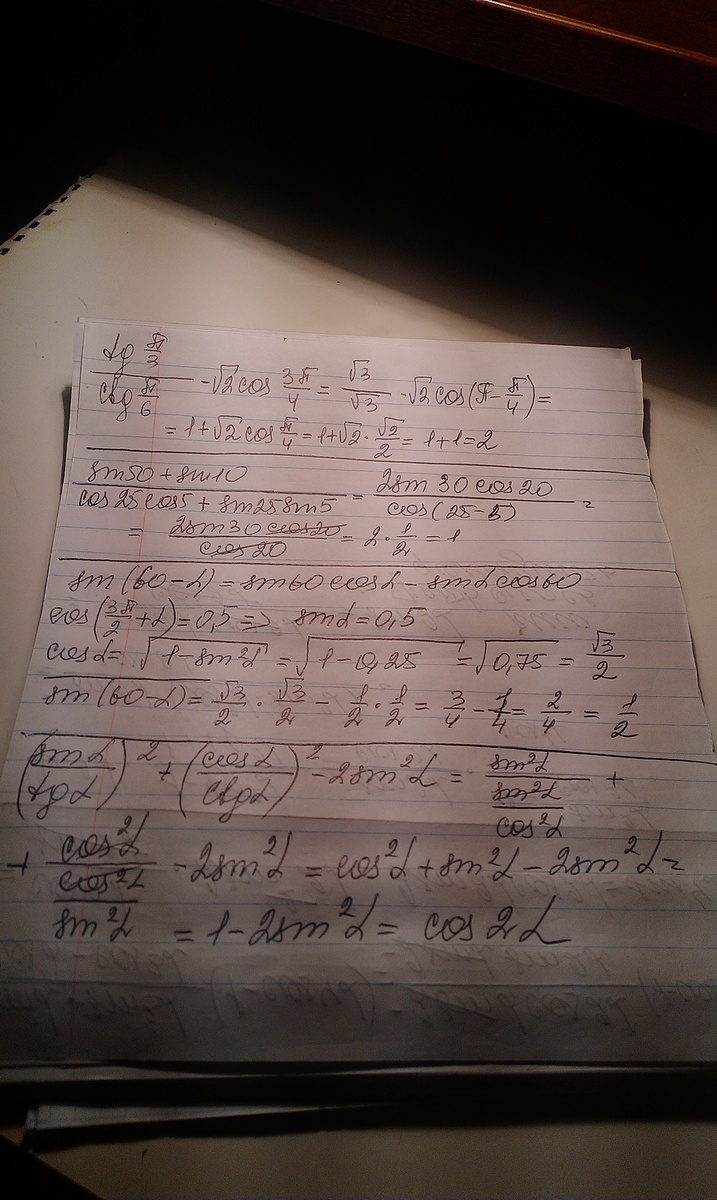 tg π/3 / ctg π/6 - √2 cos 3π/4 = √3/√3 - √2 cos(π - π/4) =
= 1 + √2 cos π/4 = 1 + √2 · √2/2 = 1 + 1 = 2
sin50 + sin10 / cos25cos5 + sin25sin5 = 2sin30cos20 / cos(25-5) =
= 2sin30cos20 / cos20 = 2 · 1/2 = 1
sin(60-α) = sin60cosα - sinαcos60
cos(3π/2 + α) = 0,5 => sinα = 0,5
cosα = √1-sin²α = √1-0,25 = √0,75 = √3/2
sin(60-α) = √3/2 · √3/2 - 1/2 · 1/2 = 3/4 - 1/4 = 2/4 = 1/2
(sinα/tgα)² + (cosα/ctgα)² - 2sin²α = sin²α / sin²α/cos²α +
+ cos²α / cos²α/sin²α - 2sin²α = cos²α + sin²α - 2sin²α =
= 1 - 2sin²α = cos2α